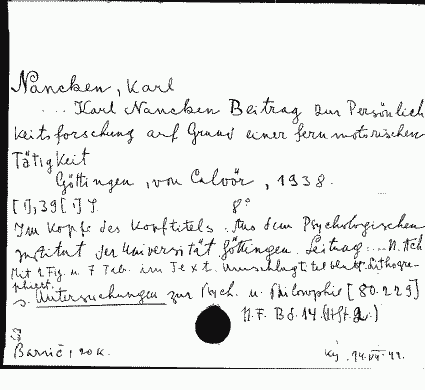 Nancken, Karl
... Karl Nancken Beitrag zur Persönlich
keitsforschung auf Grund einer fernmotorischen
Tätigkeit
Göttingen, von Calvör, 1938.
[1], 39 [1] S. 8°
Im Kopfe des Kopftitels. Aus dem Psychologischen
Institut der Universität Göttingen. Leitag.... N. Ach
Mit 2 Fig. u. 7 Tab. im Text. Umschlagt, titelblatt Lithogra-
phiert.
s. Untersuchungen zur Psych. u. Philosophie [80.229]
N.F. Bd. 14 (Hft 2.)
Barnič, 20 K.